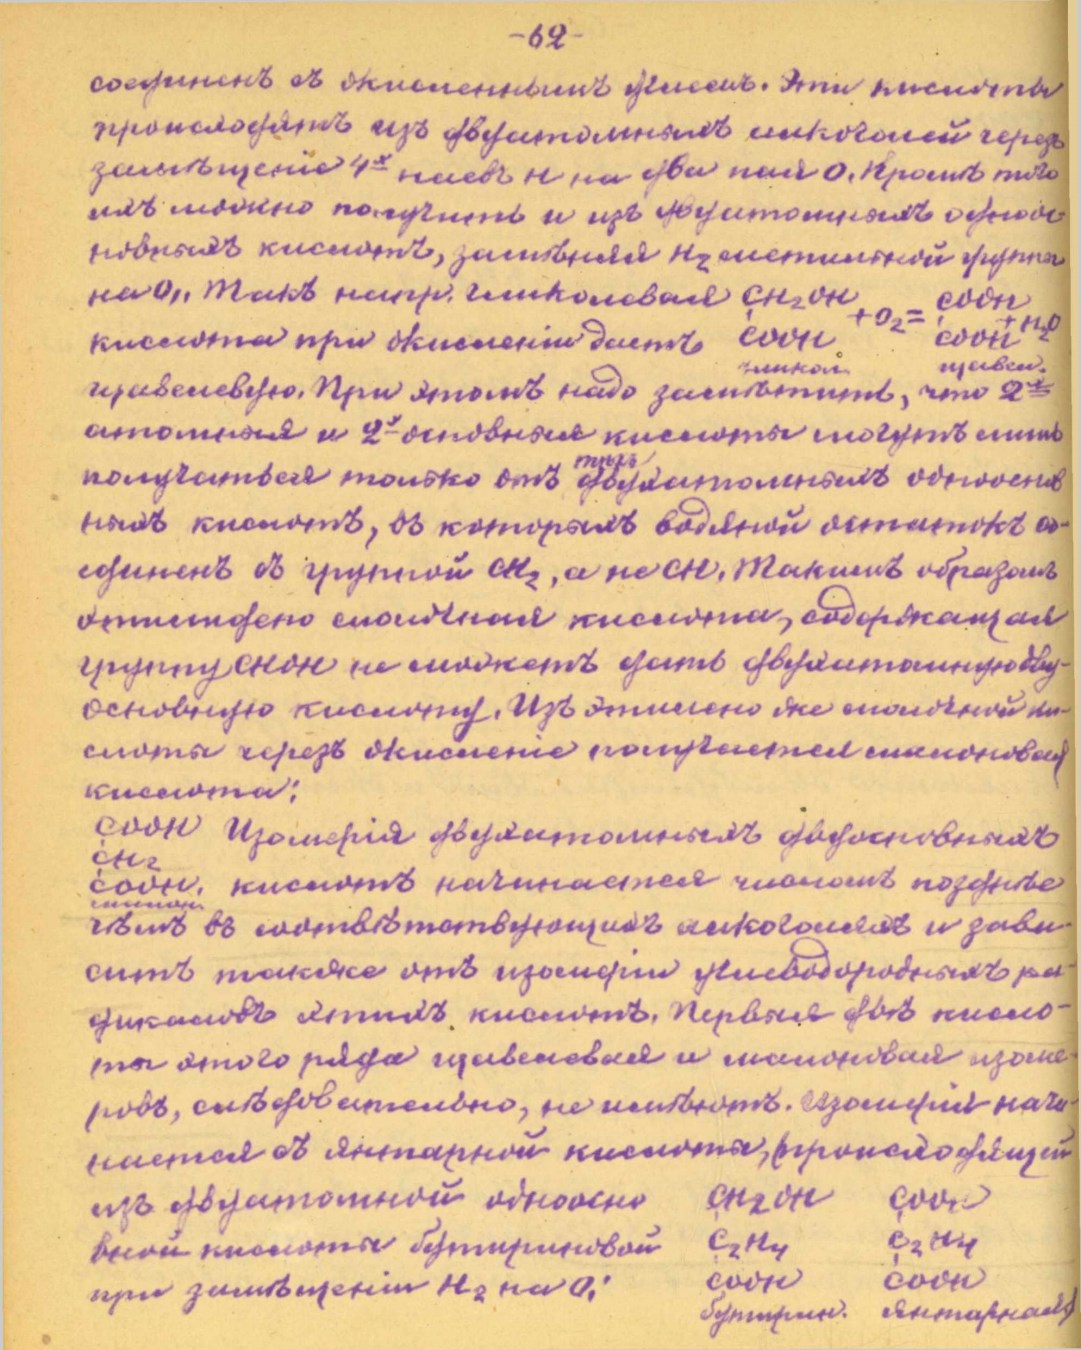 -62-
соединенъ съ окисленнымъ углемъ. Эти кислоты
происходятъ изъ двуатомныхъ алкоголей черезъ
замѣщеніе 4х паевъ H на два пая O. Кромѣ того
ихъ можно получить и изъ двуатомныхъ одноос-
новныхъ кислотъ, замѣняя H2 метильной группы
на O,. Такъ напр. гликолевая CH2OH +O2= COOH +H2O
кислота при окисленіи даетъ COOH COOH
гликол. щавел.
щавелевую. При этомъ надо замѣтить, что 2х=
атомныя и 2х-основныя кислоты могутъ лишь
получаться только отъ тѣхъ двухатомныхъ однооснов
ныхъ кислотъ, въ которыхъ водяной остатокъ со-
единенъ съ группой CH2, а не CH. Такимъ образомъ
этилидено молочная кислота, содержащая
группу CHOH не можетъ дать двухатомную дву-
основную кислоту. Изъ этилено же молочной ки-
слоты черезъ окисленіе получается малоновая
кислота:
COOH Изомерія двухатомныхъ двуосновныхъ
CH2
COOH. кислотъ начинается членомъ позднѣе
малон.
чѣмъ въ соотвѣтствующихъ алкоголяхъ и зави-
ситъ также отъ изомеріи углеводородныхъ ра-
дикаловъ этихъ кислотъ. Первыя двѣ кисло-
ты этого ряда щавелевая и малоновая изоме-
ровъ, слѣдовательно, не имѣютъ. Изомерія начи-
нается съ янтарной кислоты, происходящей
изъ двуатомной одноосно CH2OH COOH
вной кислоты бутириновой C2H4 C2H4
при замѣщеніи H2 на O: COOH COOH
бутирин. янтарная